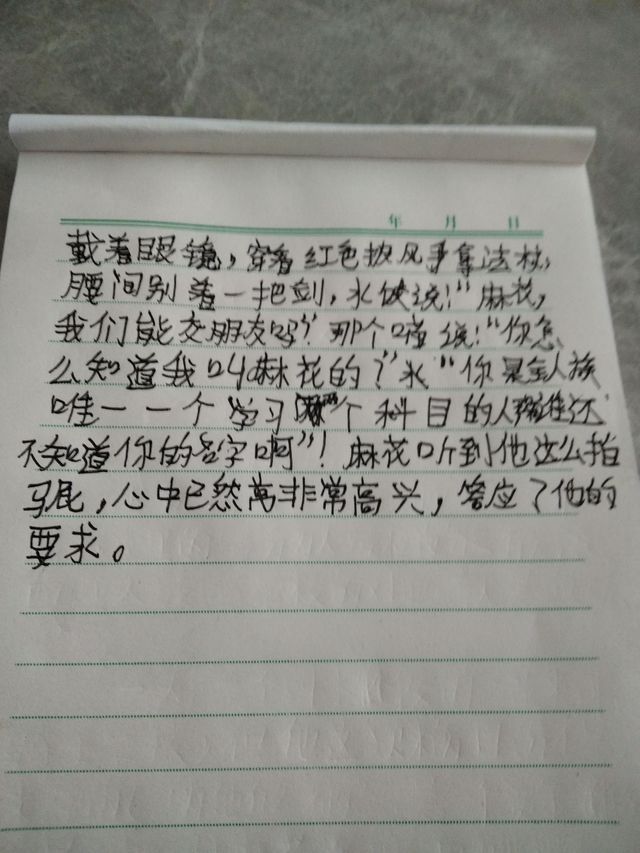 年 月 日
戴着眼镜，穿着红色披风手拿法杖，
腰间别着一把剑，水侠说！"麻花，
我们能交朋友吗？"那个 说！"你怎
么知道我叫麻花的？"水"你是全人族
唯一一个学习 个科目的人 谁还
不知道你的名字啊"！麻花听到他这么拍
马屁，心中已然高非常高兴，答应了他的
要求。